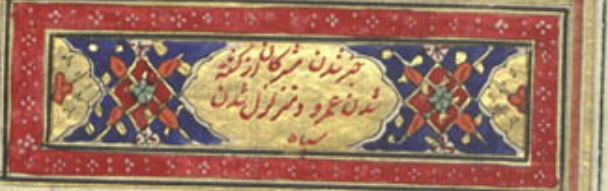 خبر شدن مشرکان از کشته
شدن عمرو و متزلزل شدن
سپاه